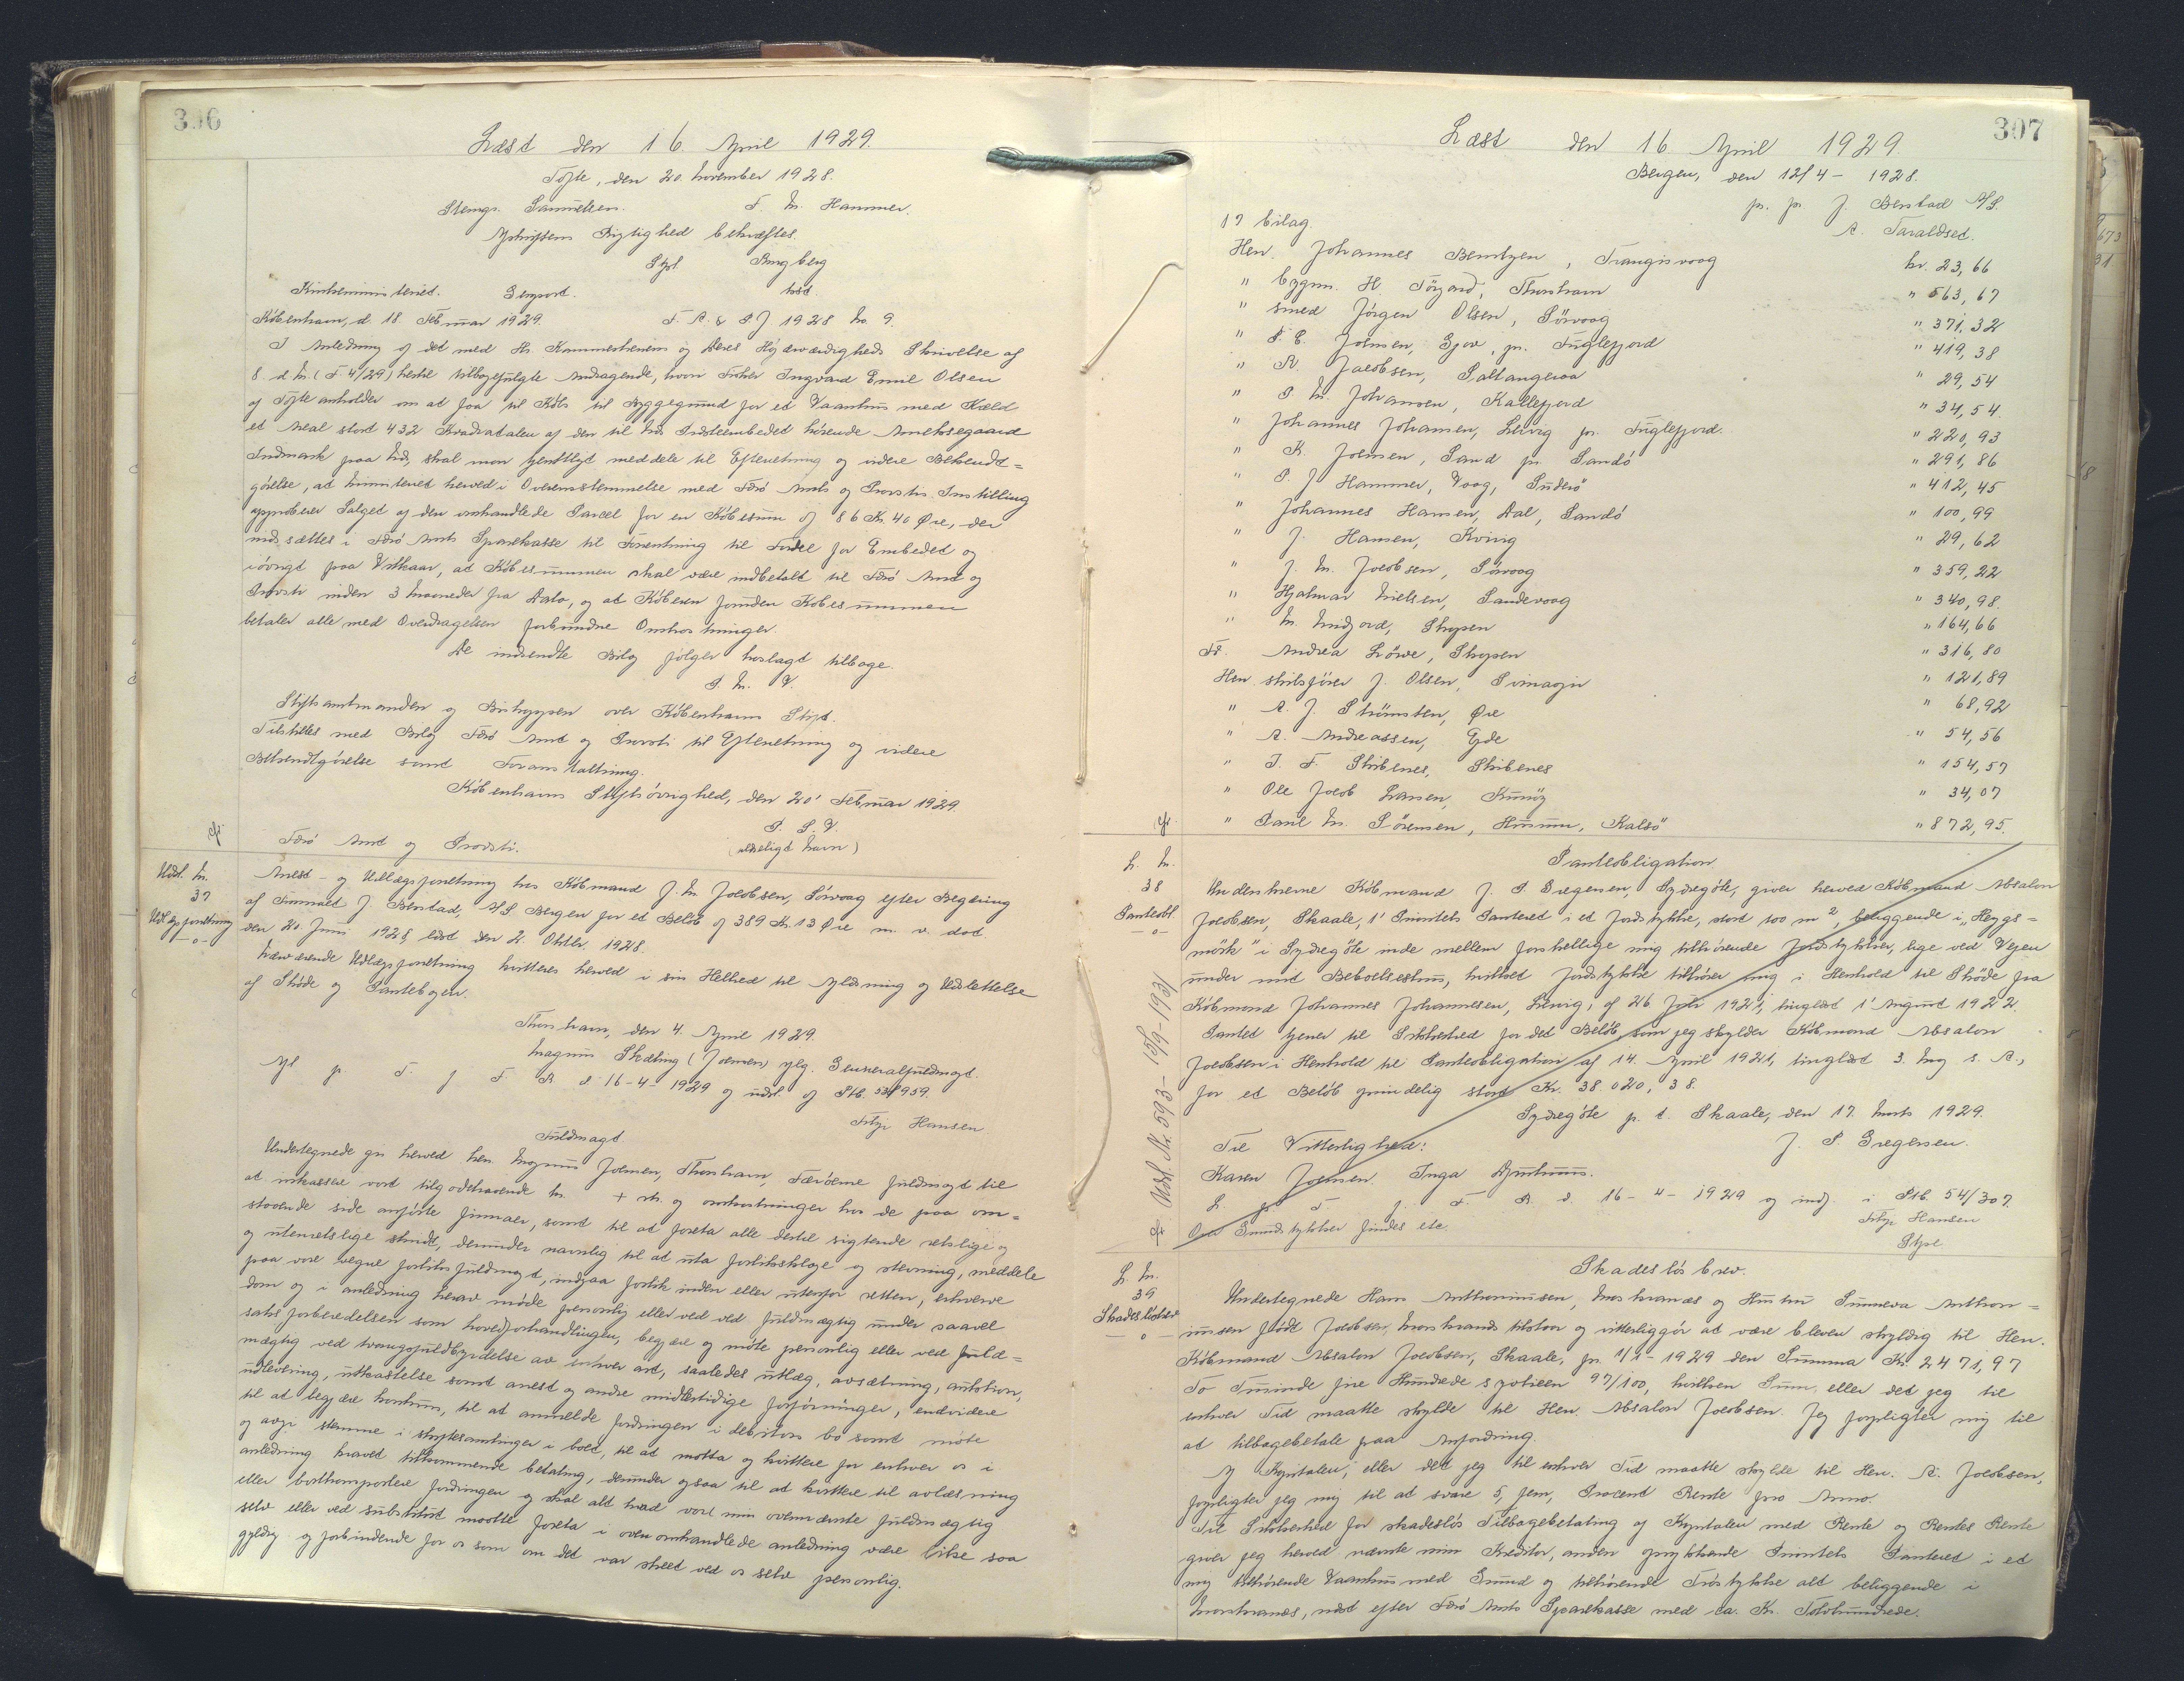 306
Læst den 16. April 1929.
Tofte, den 20. November 1928.
Samuelsen. F. M. Hammer.
Afskriftens Rigtighed bekræftes.
Stpl. Ringberg
Kirkeministeriet. Genpart. kst.
København, d. 18. Februar 1929. F. A. & P J 1928 No. 9.
I Anledning af det med Hr. Kammerherrens og Deres Højærværdigheds Skrivelse af
8 d. M. (F 4/29) hertil tilbagefulgte Andragende, hvori Fisker Ingvard Emil Olsen
af Tofte anholder om at faa til Købs til Byggegrund for et Vaanhus med Kæld
et Areal stort 432 Kvadratalen af den til Præsteembedet hørende Anneksgaard
Indmark paa skal man tjenstligt meddele til Efterretning og videre Bekendt=
gørelse, at Ministeriet herved i Overensstemmelse med Færø Amts og Provstis Indstilling
approberer Salget af den omhandlede Parcel for en Købesum af 86 Kr. 40 Øre, der
indsættes i Færø Amts Sparekasse til Forrentning til Fordel for Embedet og
iøvrigt paa Vilkaar, at Købesummen skal være indbetalt til Færø Amt og
Provsti inden 3 Maaneder fra Dato, og at Køberen foruden Købesummen
betaler alle med Overdragelsen forbundne Omkostninger.
De indsendte Bilag følger hoslagt tilbage.
P. M. V.
Stiftsamtmanden og Biskoppen over Københavns Stift.
Tilstilles med Bilag Færø Amt og Provsti til Efterretning og videre
Bekendtgørelse samt Foranstaltning.
Københavns Stiftsøvrighed, den 20' Februar 1929.
P. S. V.
Færø Amt og Provsti. (ulæseligt Navn)
Udsl. M.
37
Udlægsforretning
Arrest- og Udlægsforretning hos Købmand J. M Jacobsen, Sørvaag efter Begæring
af Firmaet J. Berstad, A/S Bergen for et Beløb af 389 Kr. 13 Øre m. v. dat
den 20. Juni 1928, læst den 2. Oktbr. 1928.
Nærværende Udlægsforretning kvitteres herved i sin Helhed til Aflæsning og Udslettelse
af Skøde og Pantebogen.
Thorshavn, den 4. April 1929.
Magnus Skæling (Joensen) flg. Generalfuldmagt.
Afl p. T. f F. R d 16-4-1929 og udsl. af Ptb. 53/959.
Hansen
Fuldmagt
Undertegnede gir herved herr. Magnus Joensen, Thorshavn, Færøerne fuldmagt til
at inkassere vort tilgodehavende kr. + rtr. og omkostninger hos de paa om=
staaende side anførte firmaer, samt til at foreta alle dertil sigtende retslige og
og utenretslige skridt, derunder navnlig til at uta forliksklage og stevning, meddele
paa vore vegne forliksfuldmagt, indgaa forlik inden eller utenfor retten, erhverve
dom og i anledning herav møde personlig eller ved ved fuldmægtig under saavel
saksforberedelsen som hovedforhandlingen, begjære og møte personlig eller ved fuld=
mægtig ved tvangsfuldbyrdelse av enhver art, saaledes utlæg, avsætning, auktion,
utlevering, utkastelse samt arrest og andre midlertidige forføininger, endvidere
til at begjære konkurs, til at anmelde fordringen i debitors bo samt møte
og avgi stemme i skiftesamlinger i boet, til at motta og kvittere for enhver os i
anledning herved tilkommende betaling, derunder ogsaa til at kvittere til avlæsning
eller borttransportere fordringen og skal alt hvad vort min ovennævnte fuldmægtig
selv eller ved substitut maatte foreta i oven omhandlede anledning være likesaa
gyldig og forbindende for os som om det var skeet ved os selv personlig.
307
Læst den 16. April 1929.
Bergen, den 12/4 - 1928.
pr. pr J. Berstad A/S.
A. Taraldset.
17 bilag.
Herr. Johannes Berntzen, Trangisvaag kr. 23,66
" bygm. H. Thorshavn " 563,67
" smed Jørgen Olsen, Sørvaag " 371,32
" P. E. Joensen, Gjov, pr. Fuglefjord " 419,38
" R. Jacobsen, Saltangeraa " 29,54
" P. M. Johansen, Kallefjord " 34,54.
" Johannes Johansen, Lervig pr. Fuglefjord. " 220,93
" K. Joensen, Sand pr. Sandö " 291,86
" P. J Hammer, Vaag, Suderö " 412,45
" Johannes Hansen, Dal, Sandö " 100,99
" J. Hansen, Kvivig " 29,62
" J. M. Jacobsen, Sörvaag " 359,22
" Hjalmar Nielsen, Sandevaag " 340,98.
" M. Midjord, Skopen " 164,66
Fr. Andrea Löwe, Skopen " 316,80
Herr skibsfører J. Olsen, Svinaojr " 121,89
" A. J. Strömsten, Øre " 68,92
" A. Andreassen, Ejde " 54,56
" J. F. Skibenes, Skibenes " 154,57
" Ole Jacob Larsen, Kunöy " 34,07
" Paul M. Sörensen, Husum, Kalsö " 872,95.
L. M.
38
Panteobl.
Udsl. N. 593 - 15/9 - 1931
Panteobligation
Underskrevne Købmand J. P Gregersen, Sydregöte, giver herved Købmand Absalon
Jacobsen, Skaale, 1' Prioritets Panteret i et Jordstykke, stort 100 m², beliggende i „Heygs=
mörk" i Sydregöte inde mellem forskellige mig tilhørende Jordstykker, lige ved Vejen
under mit Beboelseshus, hvilket Jordstykke tilhører mig i Henhold til Skøde fra
Købmand Johannes Johannesen, Lervig, af 26 Juli 1921, tinglæst 1' August 1922.
Pantet tjener til Sikkerhed for det Beløb, som jeg skylder Købmand Absalon
Jacobsen i Henhold til Panteobligation af 14. April 1921, tinglæst 3. Maj s. A.,
for et Beløb oprindelig stort Kr. 38.020,38.
Sydregöte p. t. Skaale, den 17. Marts 1929.
Til Vitterlighed: J. P. Gregersen.
Karen Joensen. Inga
L. p. T. f. F. R. d. 16-4-1929 og indf. i Ptb. 54/307.
Ovs Grundstykker findes etc. Hansen
Stpl.
L. M.
39
Skadesløsbrev
Skadesløsbrev.
Undertegnede Hans Anthoniussen, Morskranes og Hustru Sunneva Anthon=
iussen født Jacobsen, Morskranes tilstaar og vitterliggør at være bleven skyldig til Herr.
Købmand Absalon Jacobsen, Skaale, pr. 1/1 - 1929 den Summa Kr. 2471,97
To Tusinde fire Hundrede syotieen 97/100, hvilken Sum, eller det jeg til
enhver Tid maatte skylde til Herr. Absalon Jacobsen. Jeg forpligter mig til
at tilbagebetale paa Anfordring.
Af Kapitalen, eller det jeg til enhver Tid maatte skylde til Herr. A. Jacobsen,
forpligter jeg mig til at svare 5, fem, Procent Rente pro Anno.
Til Sikkerhed for skadesløs Tilbagebetaling af Kapitalen med Rente og Rentes Rente
giver jeg herved nævnte min Kreditor, anden oprykkende Prioritets Panteret i et
mig tilhørende Vaanhus med Grund og tilhørende Tröstykke alt beliggende i
Morskranes, næst efter Færø Amts Sparekasse med ca. Kr. Tolvhundrede.